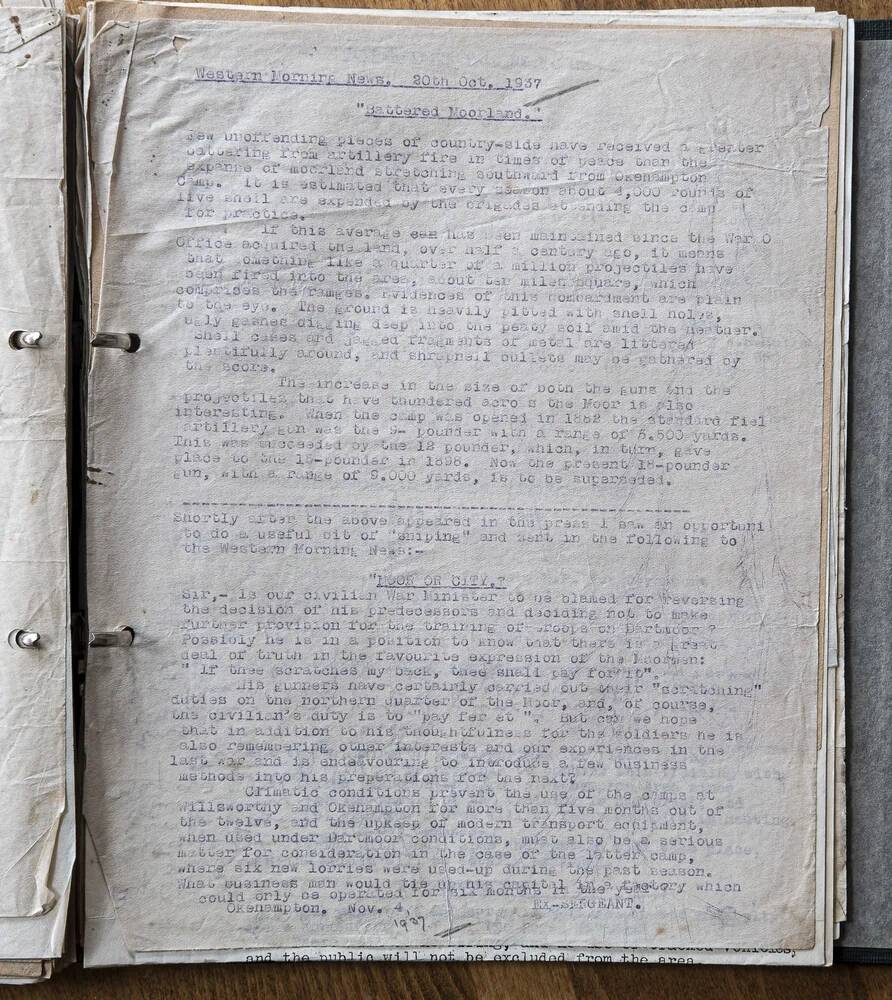 Western Morning News.  20th Oct. 1937
"Battered Moorland."
Few unoffending pieces of country-side have received a greater
battering from artillery fire in times of peace than the
expanse of moorland stretching southward from Okehampton
Camp.  It is estimated that every season about 4,000 rounds of
live shell are expended by the brigades attending the camp
for practice.
If this average has been maintained since the War O
Office acquired the land, over half a century ago, it means
that something like a quarter of a million projectiles have
been fired into the area, about ten miles square, which
comprises the ranges. Evidences of this bombardment are plain
to the eye.  The ground is heavily pitted with shell holes,
ugly gashes digging deep into the peaty soil amid the heather.
Shell cases and jagged fragments of metal are littered
plentifully around, and shrapnell bullets may be gathered by
the score.
The increase in the size of both the guns and the
projectiles that have thundered across the Moor is also
interesting.  When the camp was opened in 1882 the standard fiel
artillery gun was the 9- pounder with a range of 3.500 yards.
This was succeeded by the 12 pounder, which, in turn, gave
place to the 15-pounder in 1898.  Now the present 18-pounder
gun, with a range of 9.000 yards, is to be superseded.
Shortly after the above appeared in the press I saw an opportuni
to do a useful bit of "sniping" and sent in the following to
the Western Morning News:-
"MOOR OR CITY.?
Sir,- is our civilian War Minister to be blamed for reversing
the decision of his predecessors and deciding not to make
further provision for the training of troops on Dartmoor ?
Possibly he is in a position to know that there is a great
deal of truth in the favourite expression of the Moormen:
" If thee scratches my back, thee shall pay for it".
His gunners have certainly carried out their "scratching"
duties on the northern quarter of the Moor, and, of course,
the civilian's duty is to "pay fer et ". But can we hope
that in addition to his thoughtfulness for the soldiers he is
also remembering other interests and our experiences in the
last war and is endeavouring to introduce a few business
methods into his preperations for the next?
Climatic conditions prevent the use of the camps at
Willsworthy and Okehampton for more than five months out of
the twelve, and the upkeep of modern transport equipment,
when used under Dartmoor conditions, must also be a serious
matter for consideration in the case of the latter camp,
where six new lorries were used-up during the past season.
What business man would tie up his capital in a factory which
could only be operated for six months in the year?
Okehampton.  Nov. 4,  EX-SERGEANT.
1937
and the public will not be excluded from the area